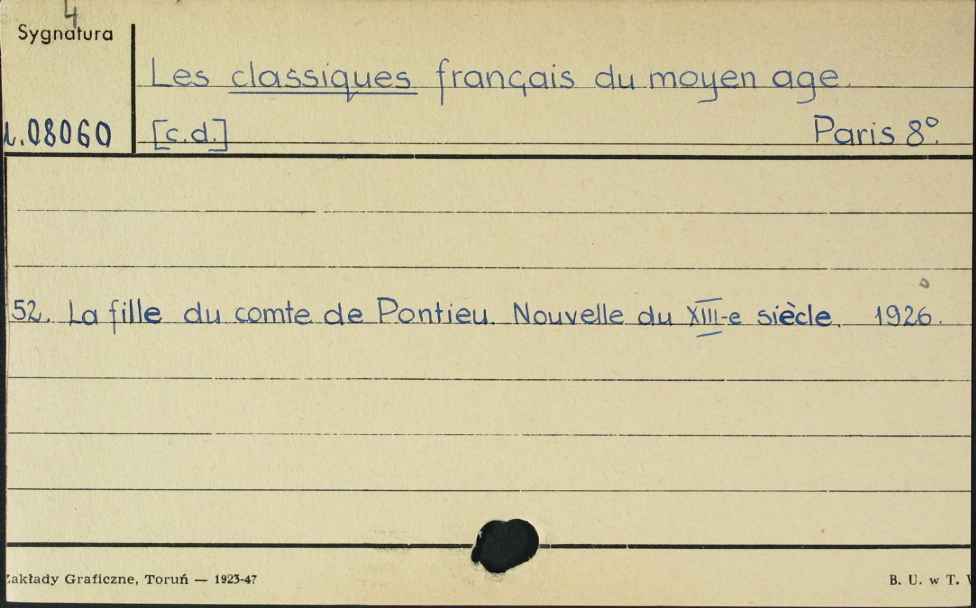 4
Sygnatura
Les classiques français du moyen age.
08060
[c.d.]
Paris 8°.
52. La fille du comte de Pontieu. Nouvelle du XIII-e siècle. 1926.
Zakłady Graficzne, Toruń — 1923-47
B. U. w T.